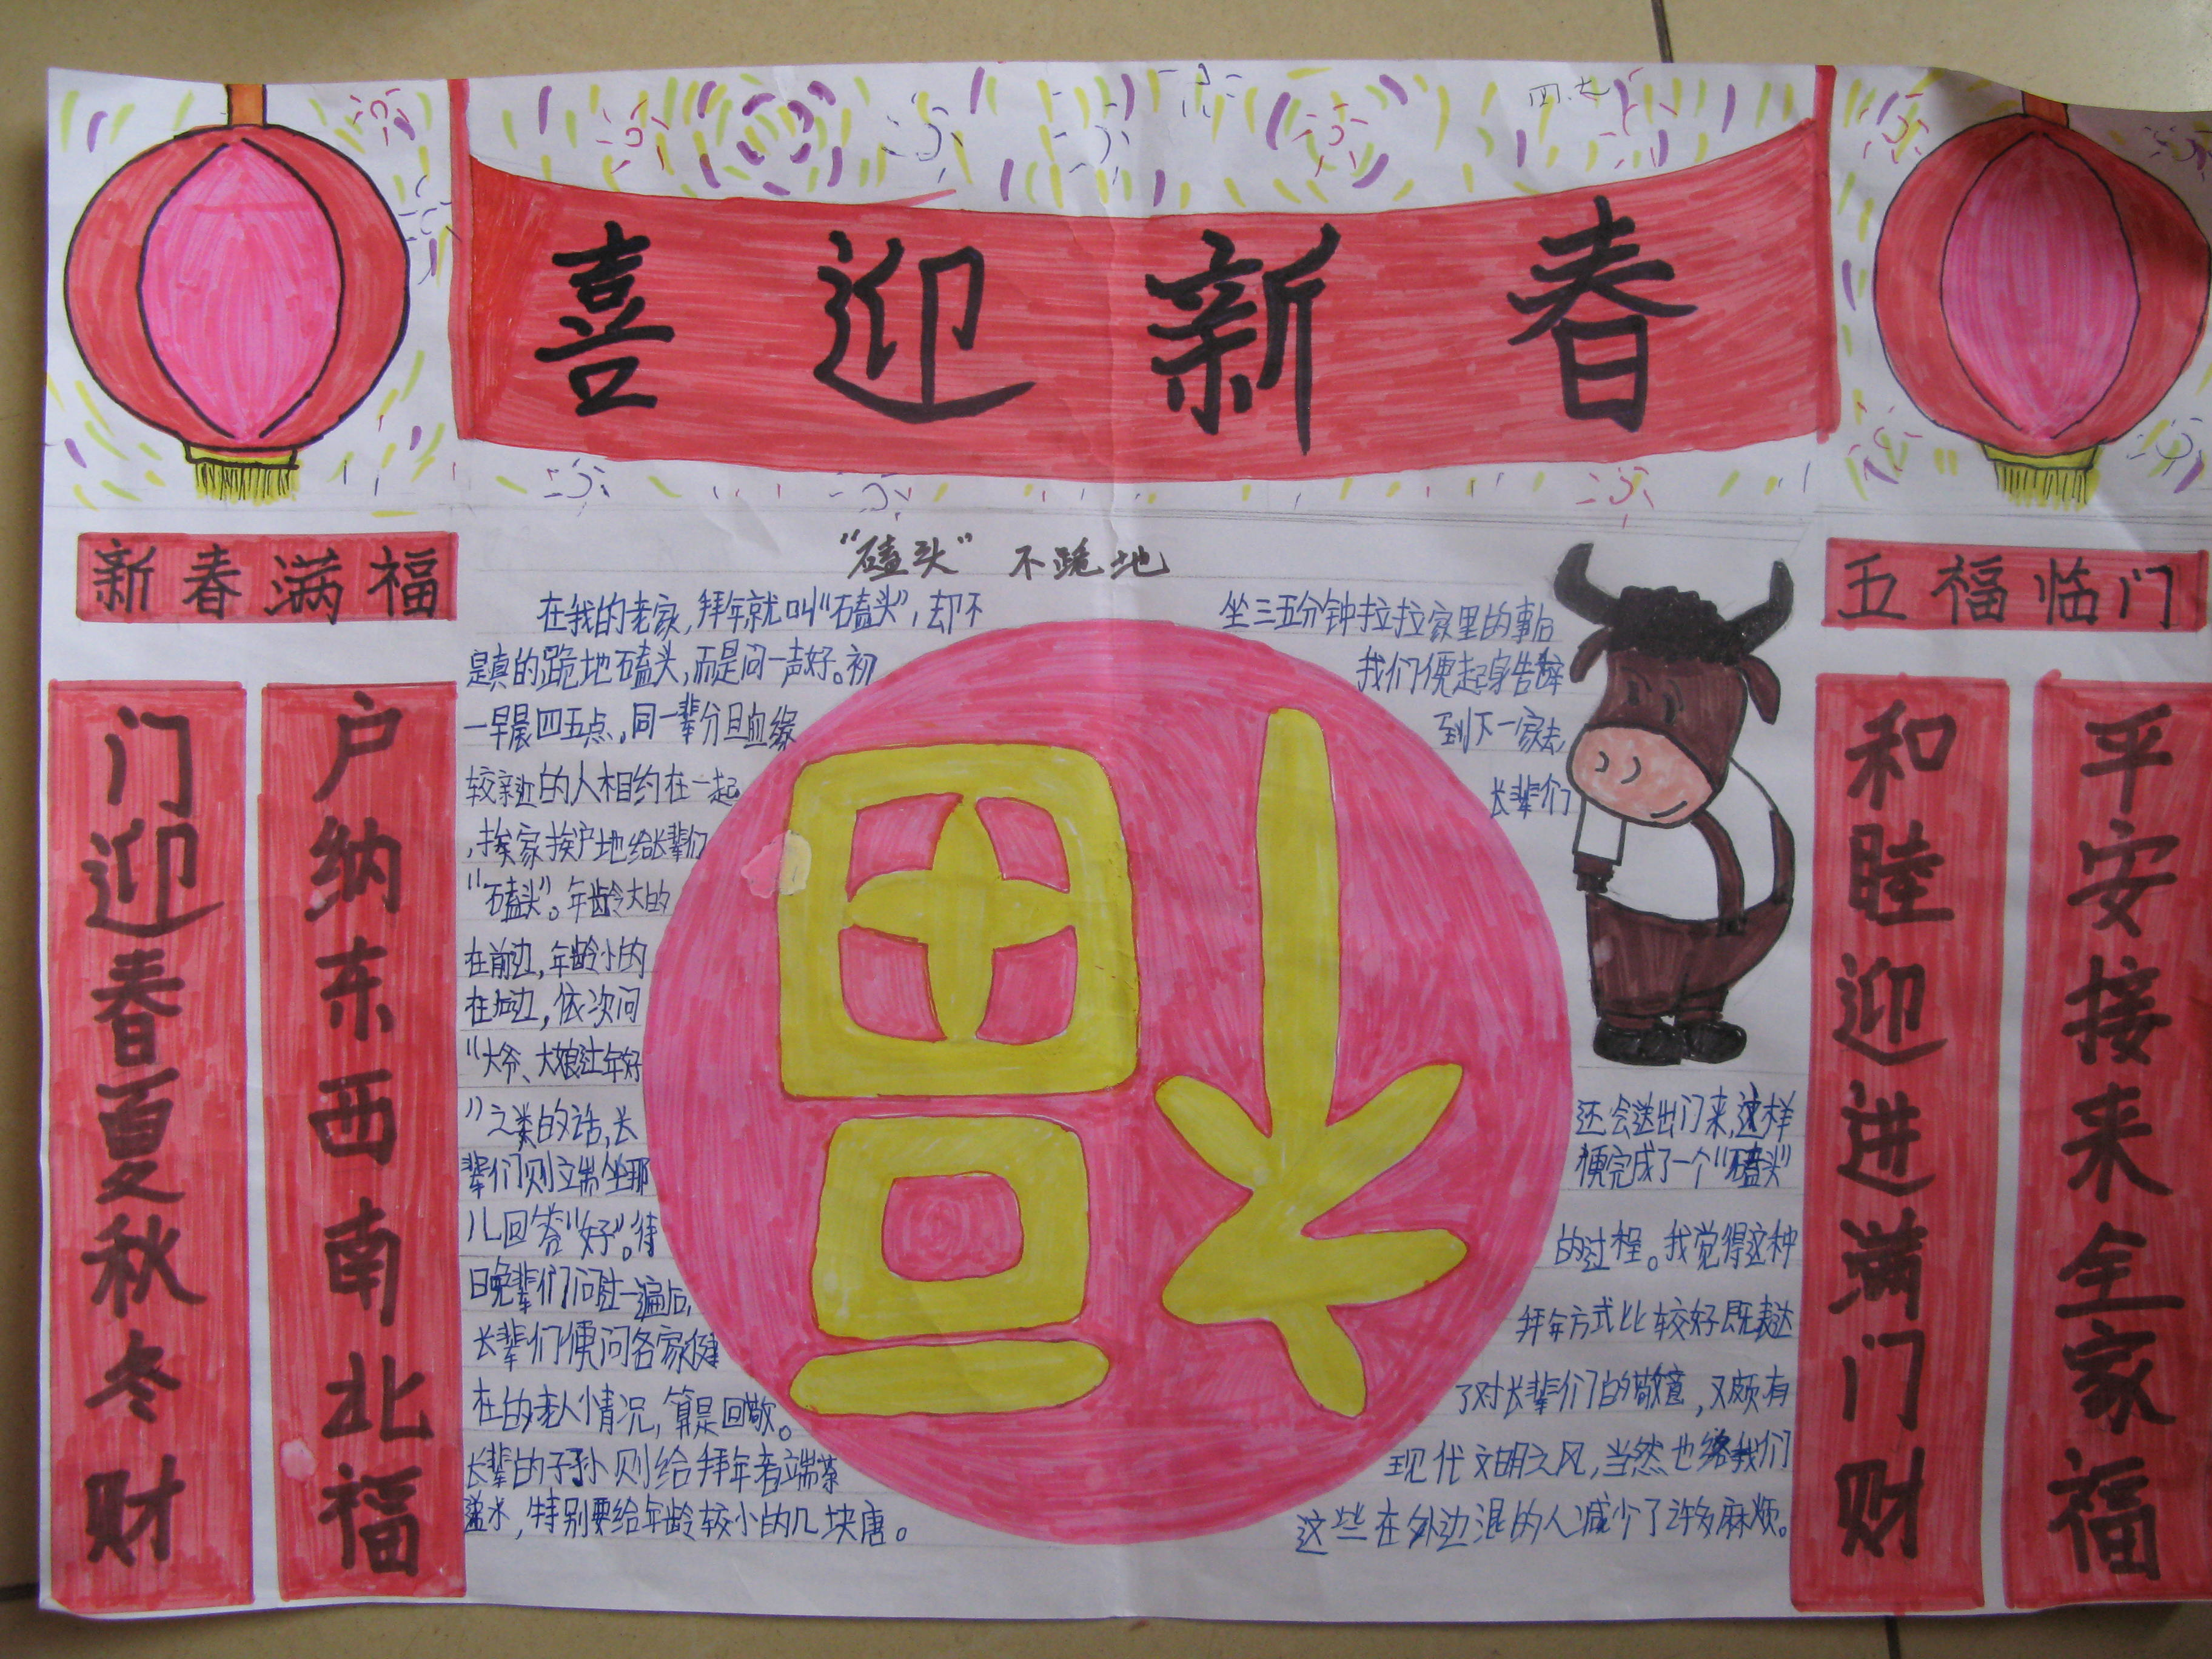 喜迎新春
新春满福
门迎春夏秋冬财
户纳东西南北福
五福临门
和睦迎进满门财
平安接来全家福
福
“磕头” 不跪地
在我的老家,拜年就叫“磕头”,却不
是真的跪地磕头,而是问一声好。初
一早晨四五点。同一辈分且血缘
较亲近的人相约在一起
,挨家挨户地给长辈们
“磕头”。年龄大的
在前边,年龄小的
在后边,依次问
“大爷、大娘过年好
”之类的话,长
辈们则立端坐那
儿回答“好”。待
晚辈们问过一遍后,
长辈们便问各家健
在的老人情况,算是回敬。
长辈的子孙则给拜年者端茶
送水,特别要给年龄较小的几块唐。
坐三五分钟拉拉家里的事后
我们便起身告辞
到下一家去,
长辈们
还会送出门来,这样
便完成了一个“磕头”
的过程。我觉得这种
拜年方式比较好既表达
了对长辈们的敬意,又颇有
现代文明之风,当然也给我们
这些在外边混的人减少了许多麻烦。